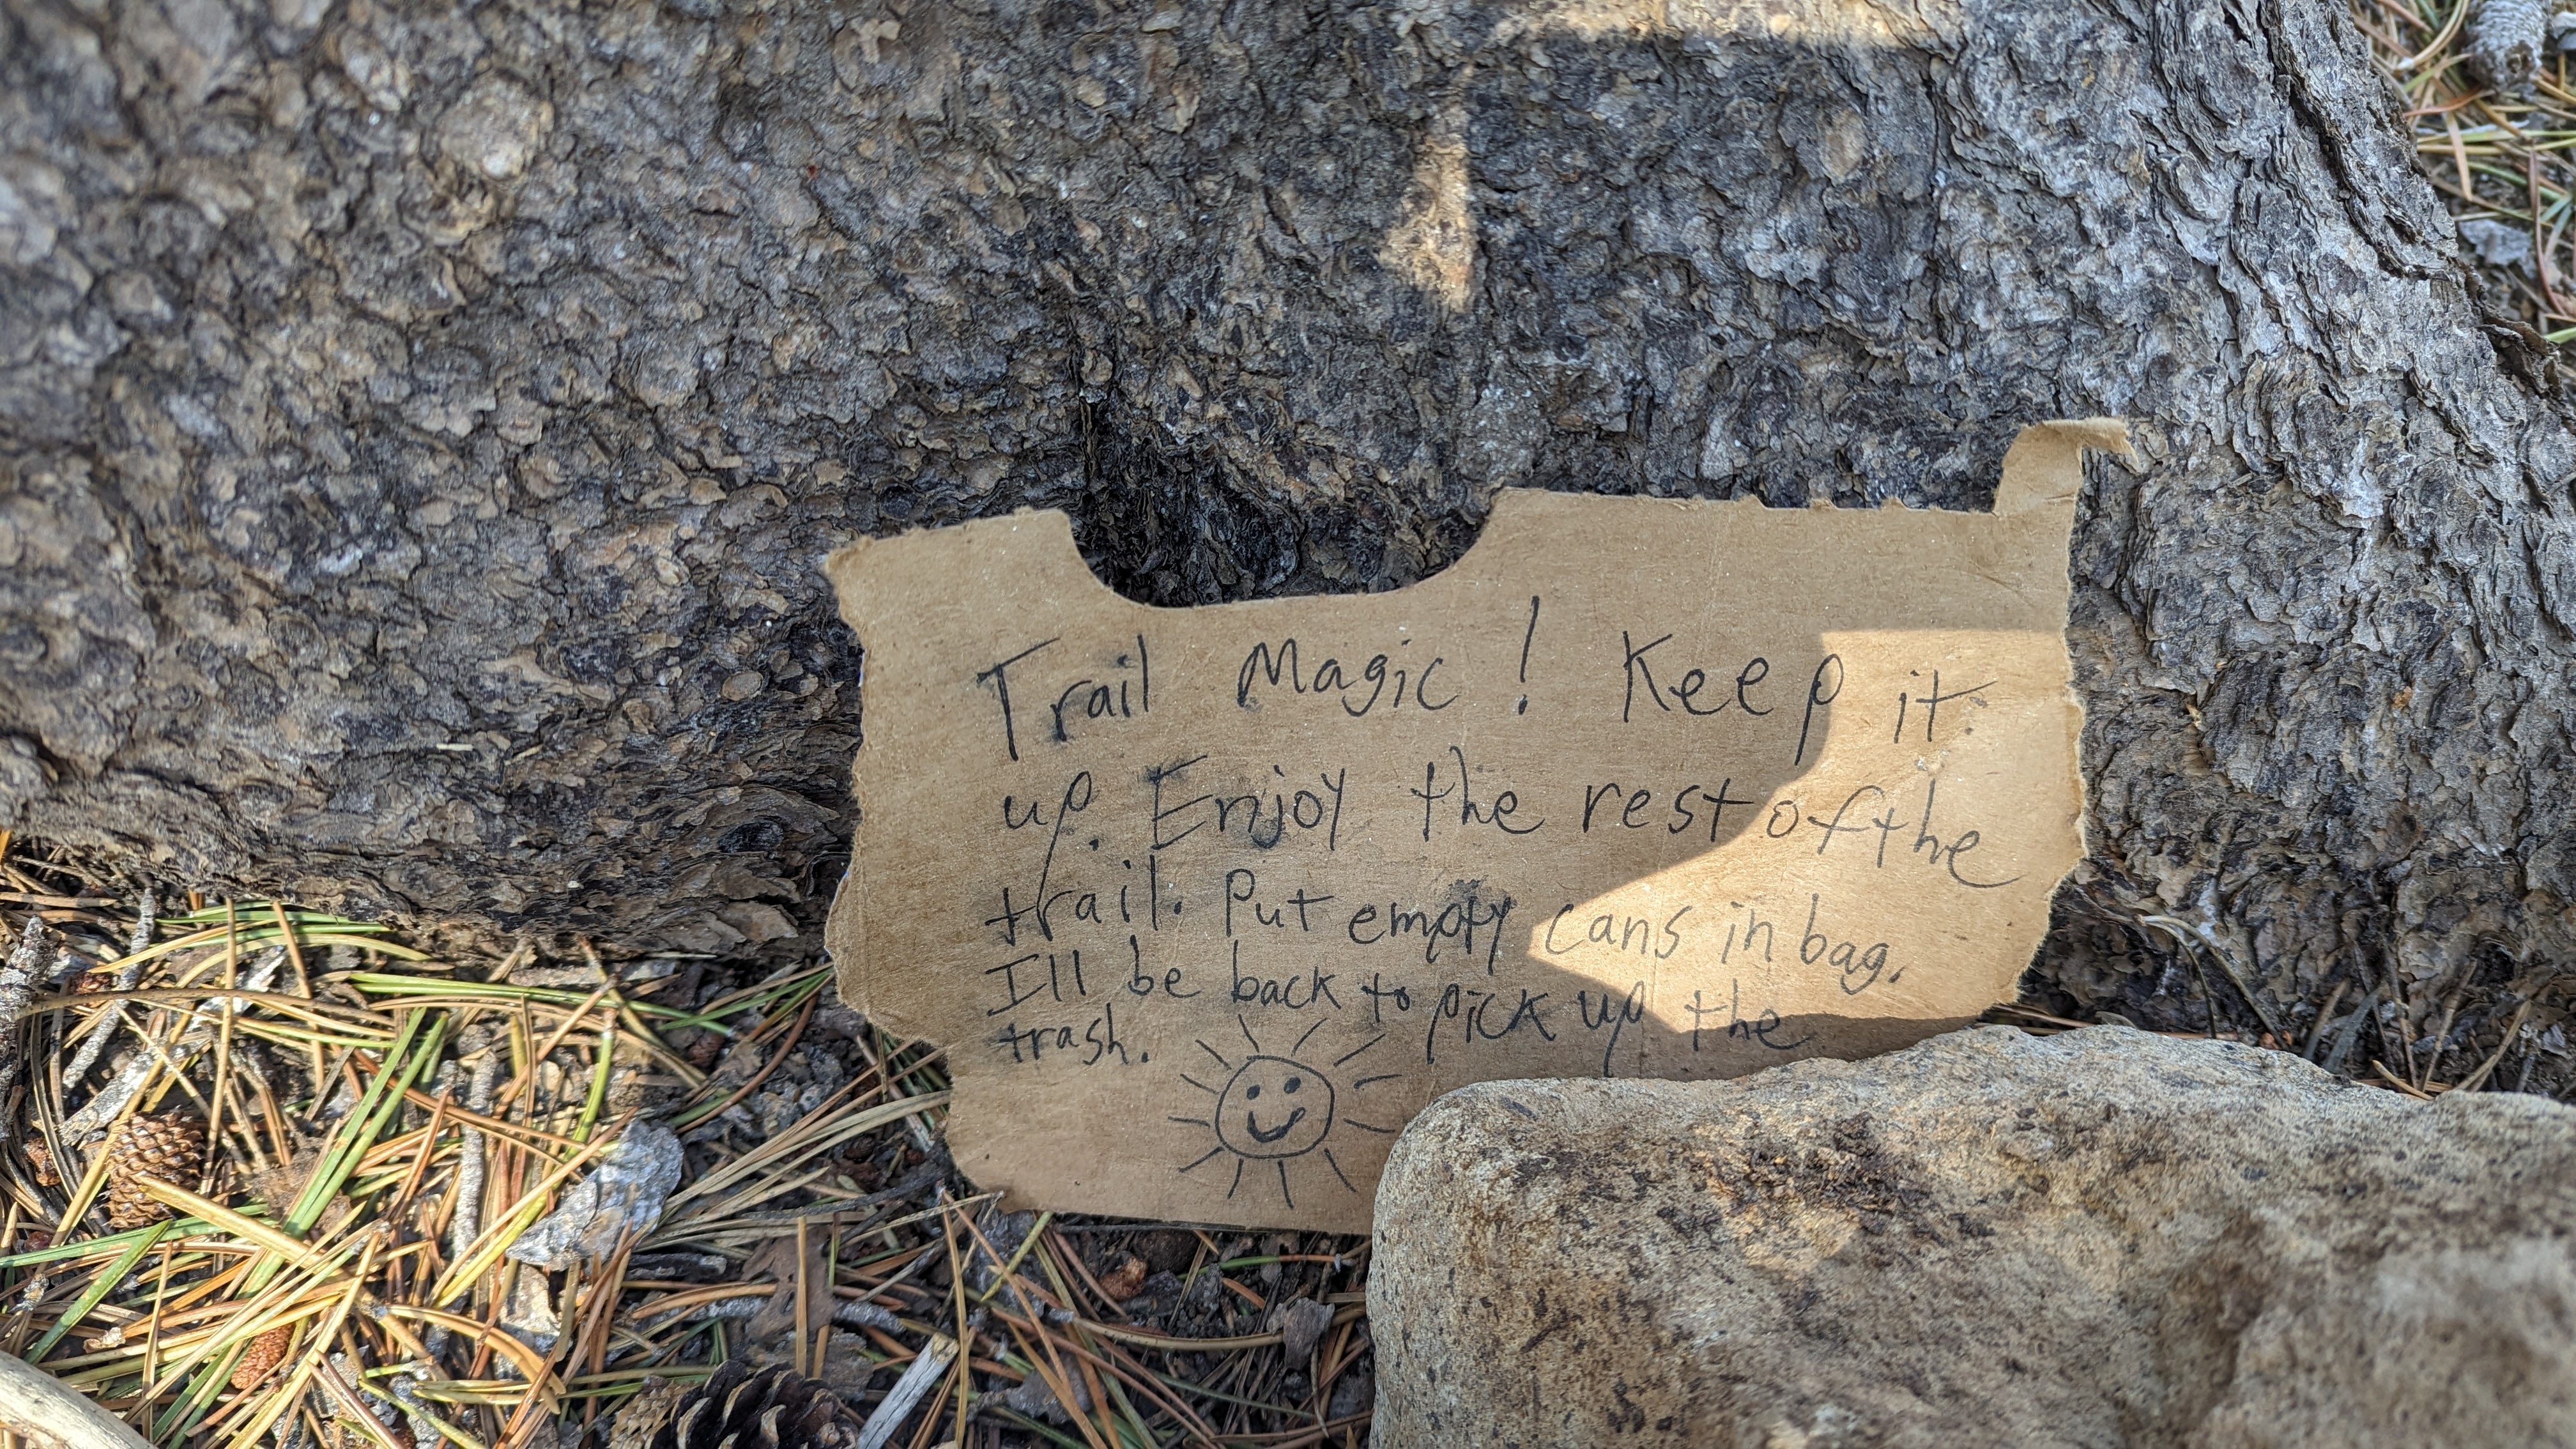 Trail Magic! Keep it
up. Enjoy the rest of the
trail. Put empty cans in bag.
Ill be back to pick up the
trash.